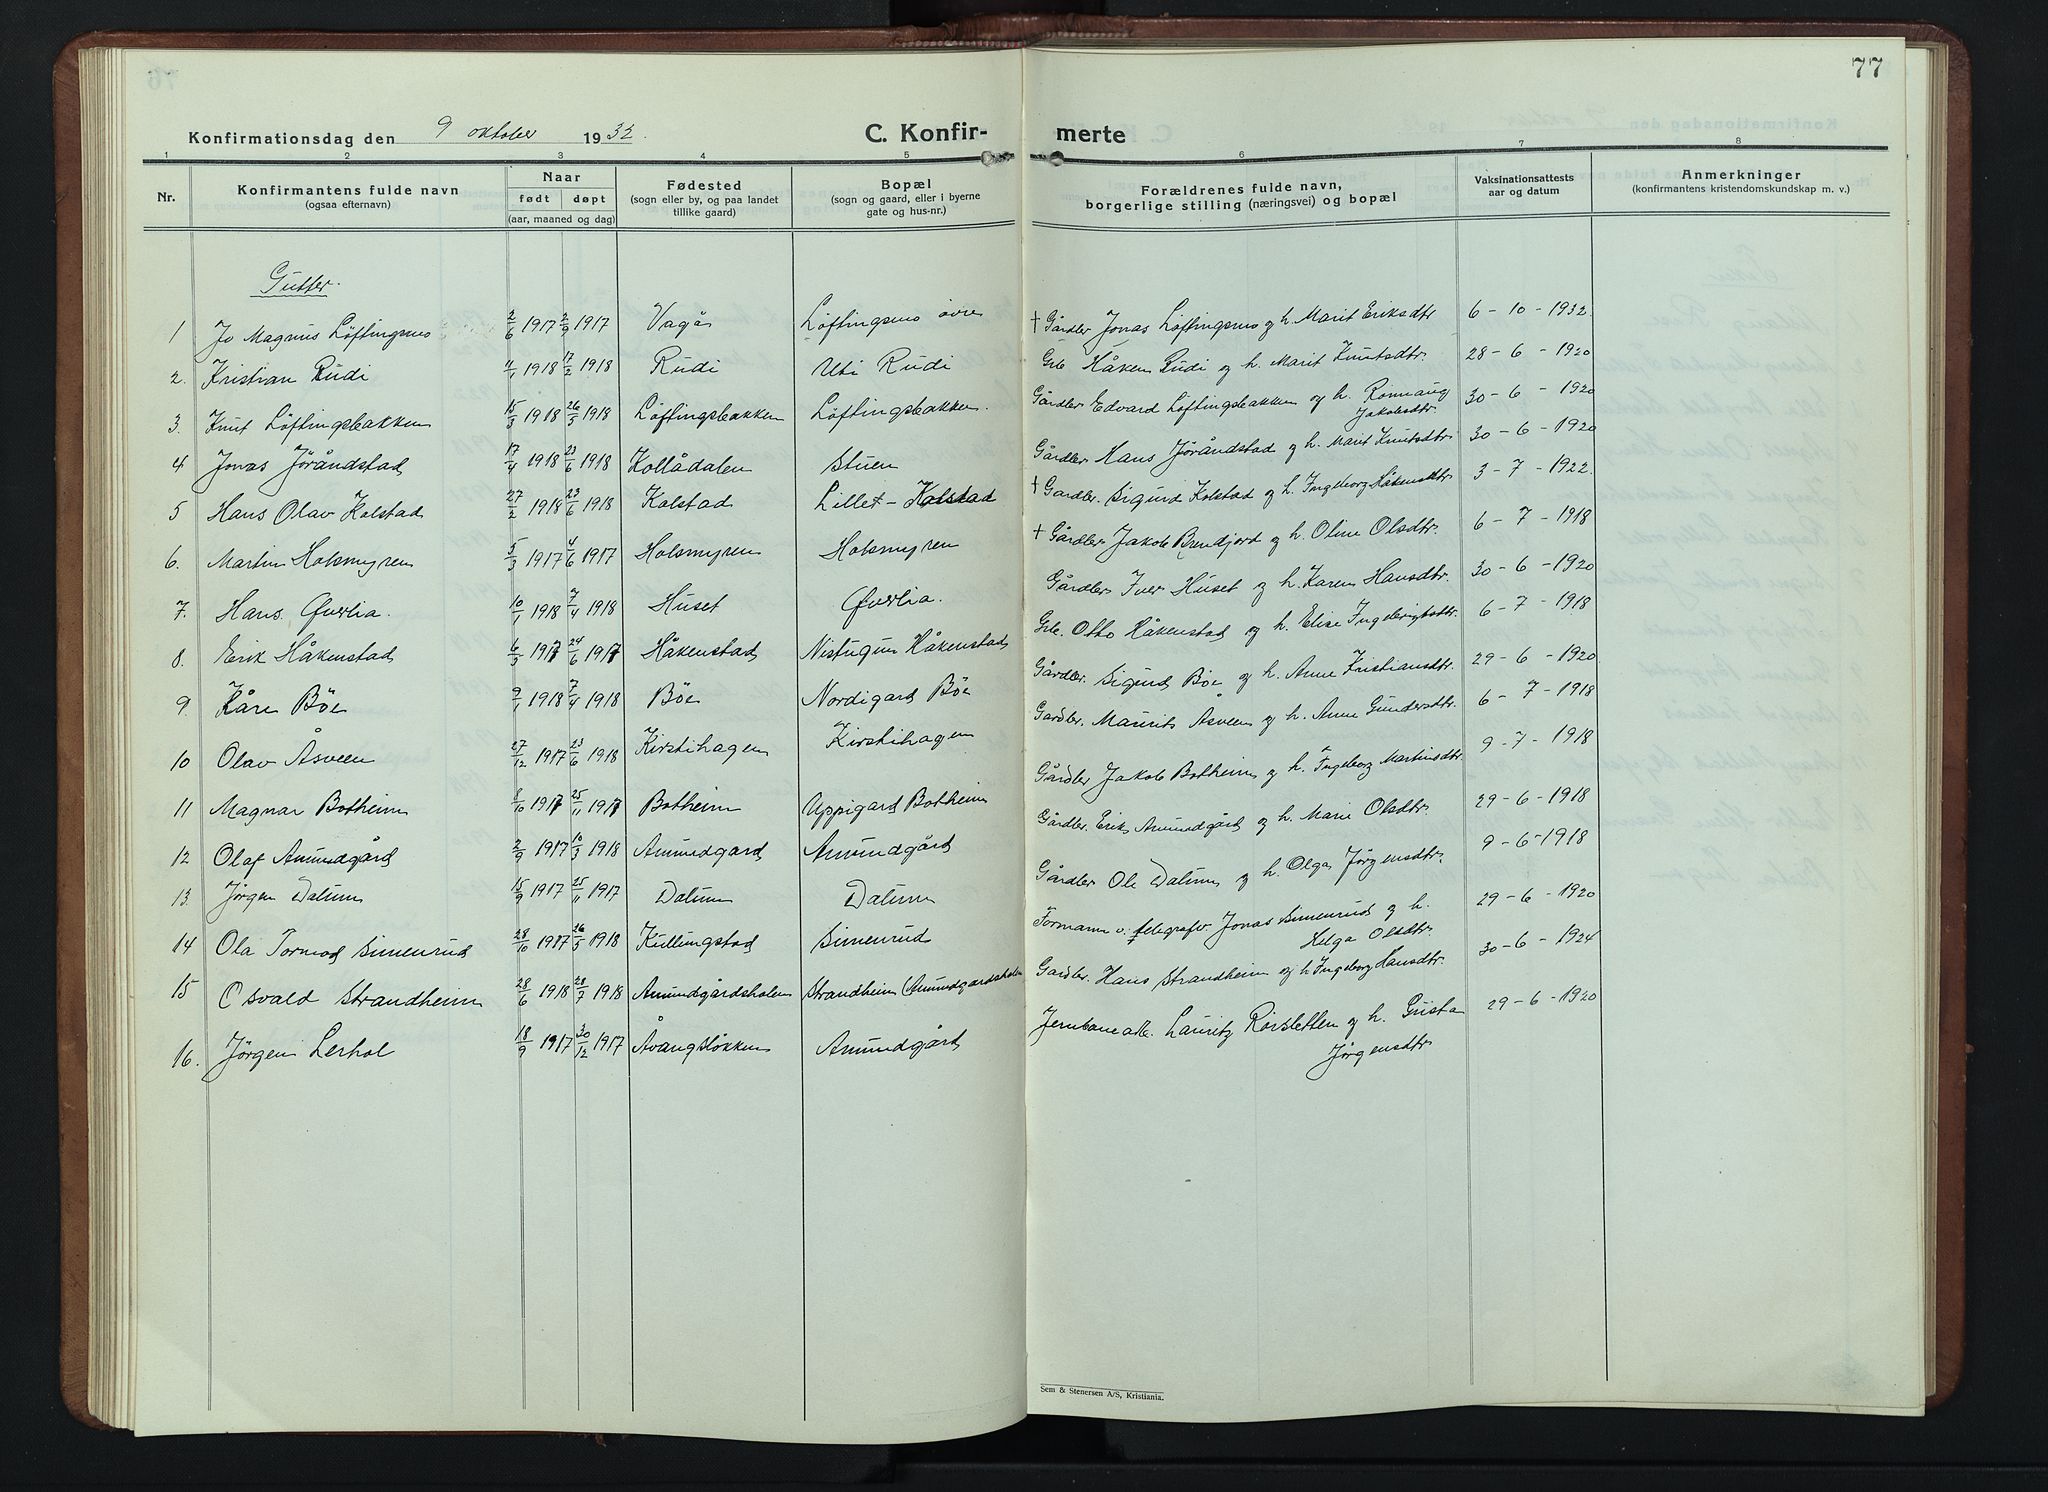 77
Konfirmationsdag den 9 oktober 1932.
C. Konfir- merte
1 2 3 4 5 6 7 8
Nr. Konfirmantens fulde navn (ogsaa efternavn) Naar født døpt (aar, maaned og dag) Fødested (sogn eller by, og paa landet tillike gaard) Bopæl (sogn og gaard, eller i byerne gate og hus-nr.) Forældrenes fulde navn, borgerlige stilling (næringsvei) og bopæl Vaksinationsattests aar og datum Anmerkninger (konfirmantens kristendomskundskap m. v.)
Gutter.
1 Jo Magnus Löftingsmo 2/6 1917 2/9 1917 Vågå Löftingsmo övre + Gårdbr Jonas Löftingsmo og h. Marit Eriksdtr 6-10-1932.
2. Kristian Rudi 4/1 1918 17/2 1918 Rudi Uti Rudi Grb Håken Rudi og h. Marit Knutsdtr. 28-6-1920
3. Knut Löftingsbakken 15/3 1918 26/5 1918 Löftingsbakken Löftingsbakken. Gårdbr Edvard Löftingsbakken og h. Rönnaug Jakobsdtr. 30-6-1920
4 Jonas Jöråndstad 17/4 1918 23/6 1918 Kollådalen Stuen Gårdbr Hans Jöråndstad og h. Marit Knutsdtr 30-6-1920
5 Hans Olav Kolstad 27/2 1918 23/6 1918 Kolstad Lillet-Kolstad + Gardbr. Sigurd Kolstad og h. Ingeborg Håkensdtr 3-7-1922.
6. Martin Holsmyren 5/3 1917 4/6 1917 Holsmyren Holsmyren + Gårdbr Jakob Brendjord og h. Oline Olsdtr. 6-7-1918
7. Hans Øverlia. 10/1 1918 7/4 1918 Huset Øverlia. Gårdbr Iver Huset og h. Karen Hansdtr. 30-6-1920
8. Erik Håkenstad 6/3 1917 24/6 1917 Håkenstad Nistugun Håkenstad Grb. Otto Håkenstad og h. Elise Ingebrigtsdtr 6-7-1918
9. Kåre Böe 9/1 1918 7/4 1918 Böe Nordigard Böe Gårdbr. Sigurd Böe og h. Anne Kristiansdtr. 29-6-1920
10 Olav Åsveen 27/12 1917 23/6 1918 Kirstihagen Kirstihagen Gardbr. Maurits Åsveen og h. Anne Gundersdtr. 6-7-1918
11 Magnar Botheim 8/10 1917 25/11 1917 Botheim Uppigard Botheim Gårdbr Jakob Botheim og h. Ingeborg Martinsdtr. 9-7-1918
12 Olaf Amundgård 2/9 1917 10/3 1918 Amundgard Amundgård Gårdbr. Erik Amundgård og h. Marie Olsdtr. 29-6-1918
13. Jörgen Dalum 15/9 1917 25/11 1917 Dalum Dalum Gårdbr Ole Dalum og h. Olga Jörgensdtr. 9-6-1918
14 Ola Tormod Simenrud 28/10 1917 26/5 1918 Kullungstad Simenrud Formann v. telegrafv Jonas Simenrud og h. Helga Olsdtr. 29-6-1920
15 Osvald Strandheim 28/6 1918 28/7 1918 Amundgårdsholen Strandheim Amundgardsholen Gardbr. Hans Strandheim og h Ingeborg Hansdtr. 30-6-1924
16. Jörgen Lerhol 18/9 1917 30/12 1917 Åvangslökken Amundgård Jernbanearb. Lauritz Rörsletten og h. Gusta Jörgensdtr 29-6-1920
Sem & Stenersen A/S, Kristiania.